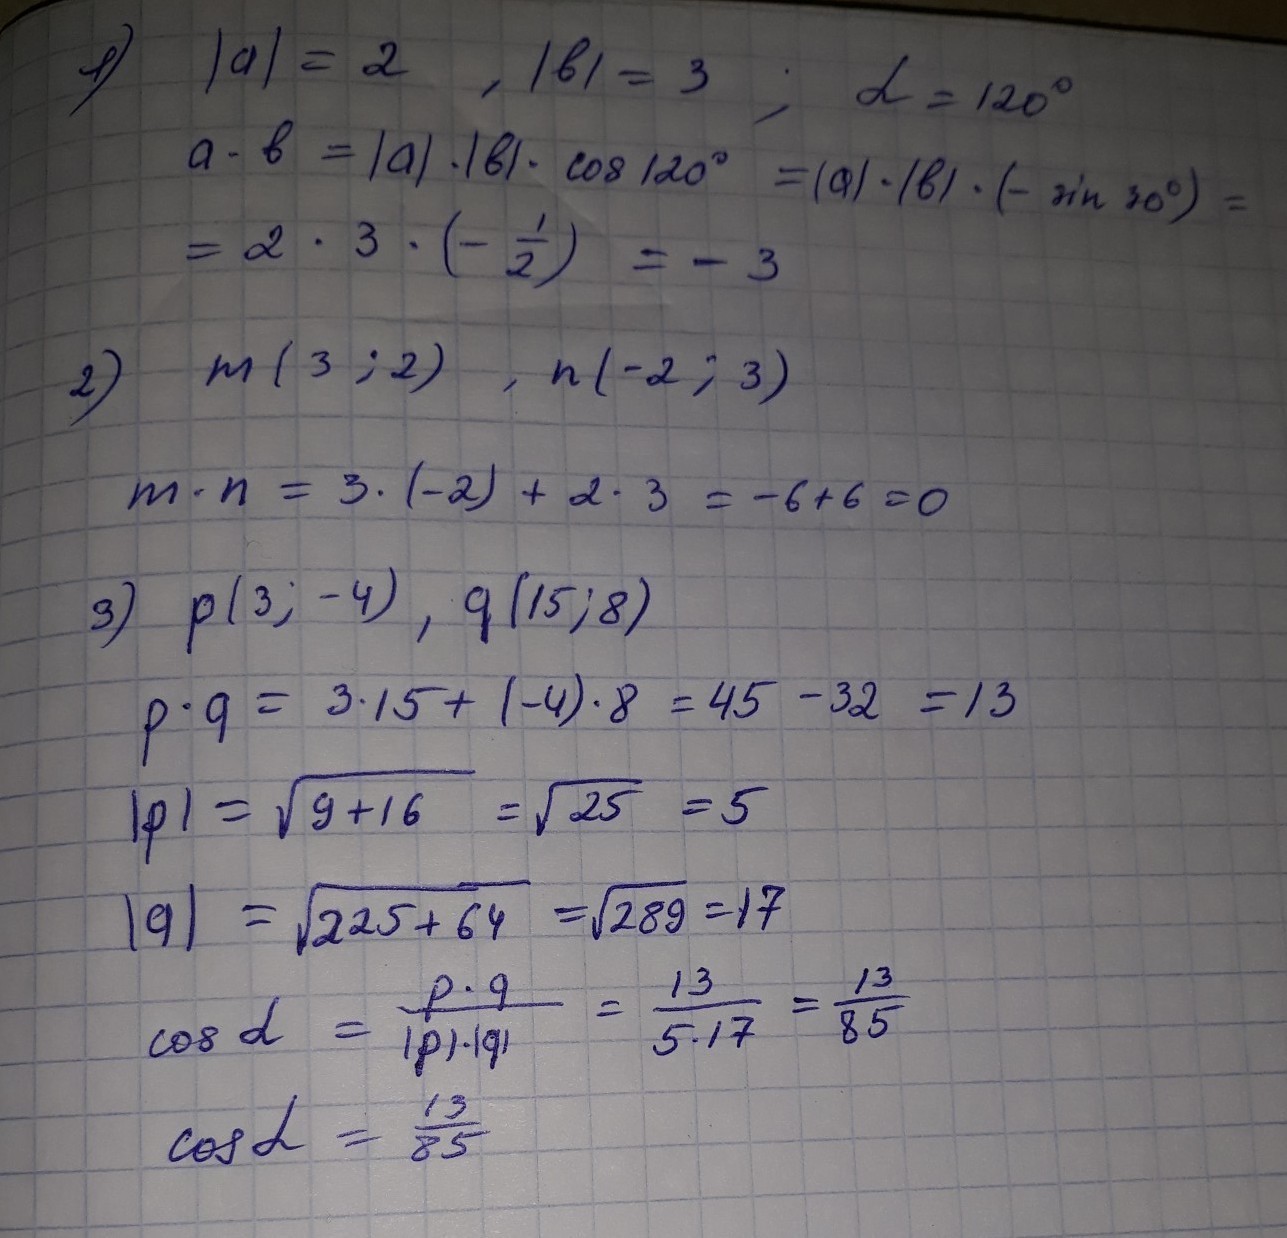 1) |a| = 2 , |b| = 3 ; α = 120°
a · b = |a| · |b| · cos 120° = |a| · |b| · (- sin 30°) =
= 2 · 3 · (- 1/2) = - 3
2) m(3 ; 2) , n(-2 ; 3)
m · n = 3 · (-2) + 2 · 3 = -6+6 = 0
3) p(3; -4) , q(15; 8)
p · q = 3·15 + (-4)·8 = 45 - 32 = 13
|p| = √(9+16) = √25 = 5
|q| = √(225+64) = √289 = 17
cos α = p·q / |p|·|q| = 13 / 5·17 = 13/85
cos α = 13/85